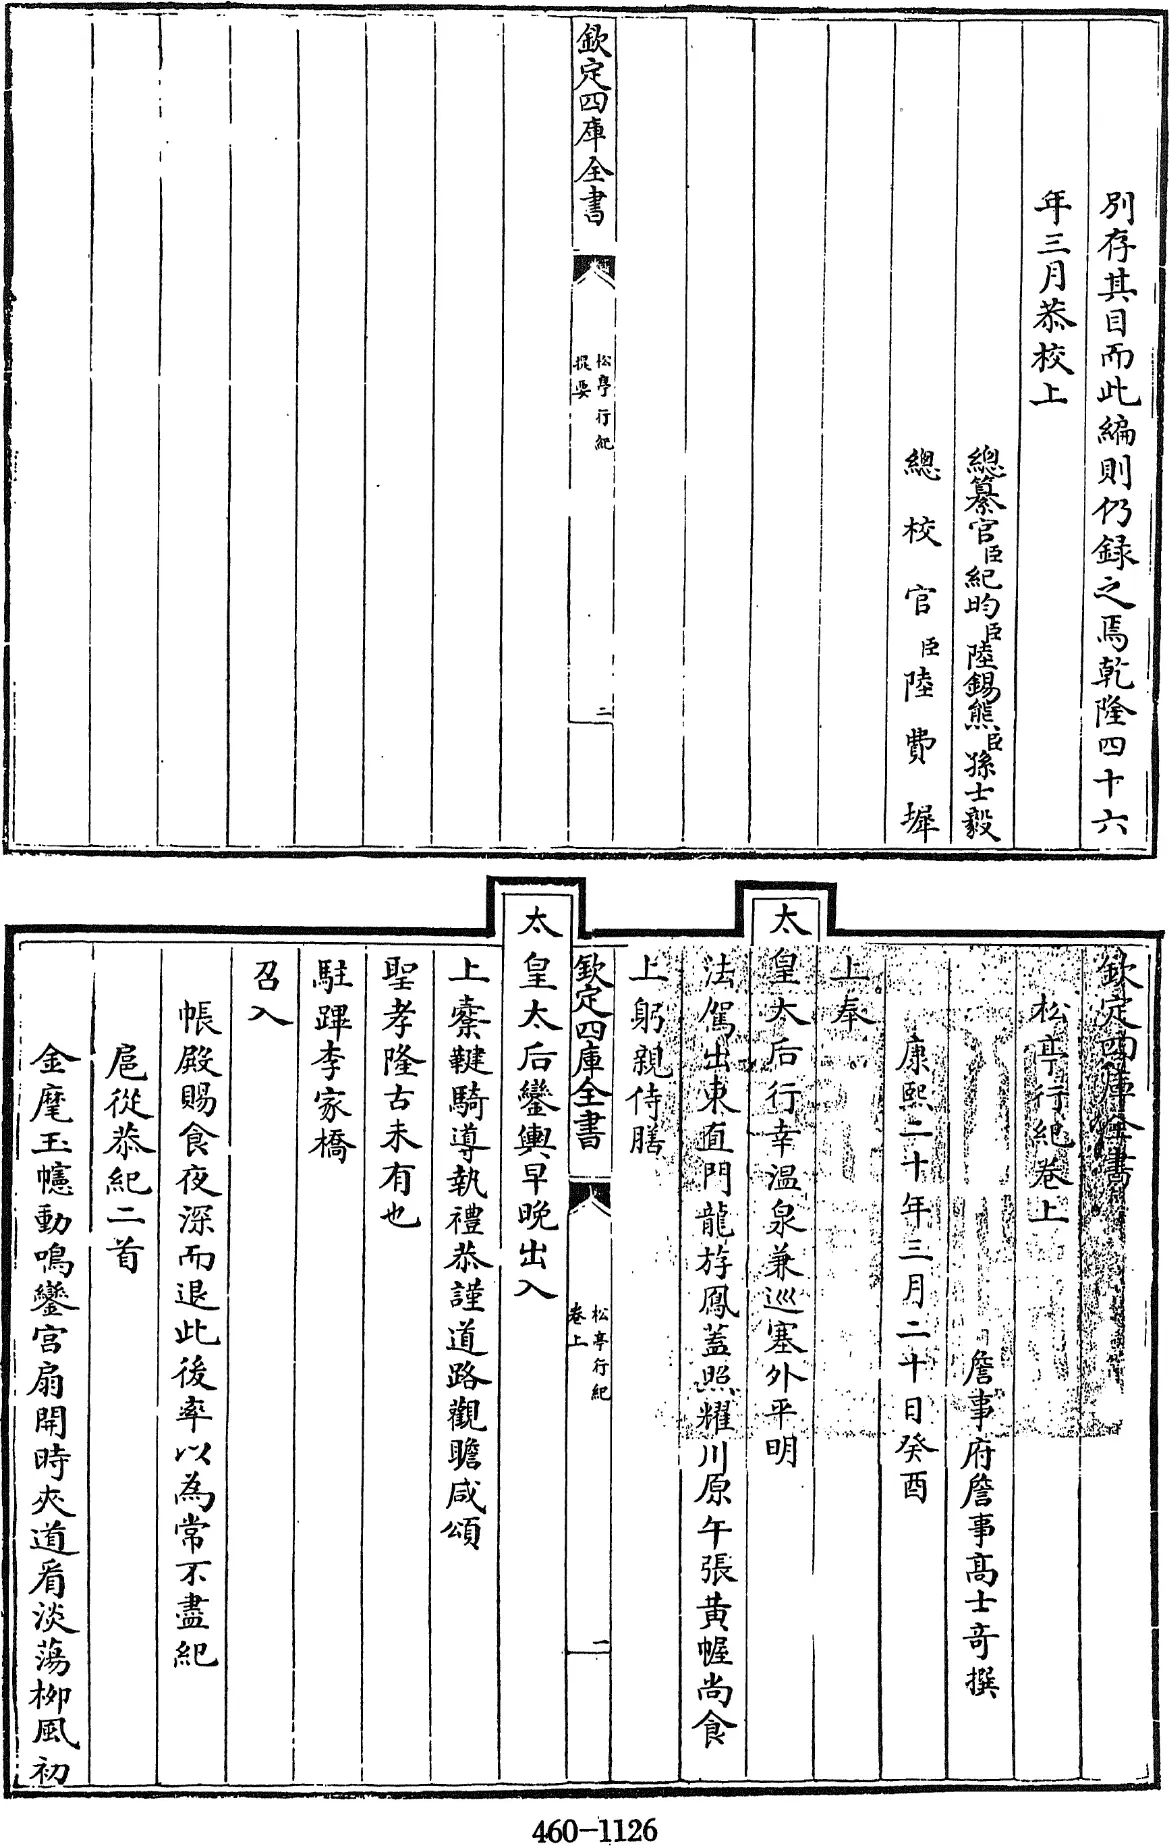 別存其目而此編則仍録之焉乾隆四十六
年三月恭校上
總纂官臣紀昀臣陸錫熊臣孫士毅
總校官臣陸費墀
欽定四庫全書
松亭行紀
提要
二
欽定四庫全書
松亭行紀卷上
詹事府詹事高士奇撰
康熙二十年三月二十日癸酉
上奉
太皇太后行幸温泉兼巡塞外平明
法駕出東直門龍斿鳳蓋照耀川原午張黄幄尚食
上躬親侍膳
欽定四庫全書
松亭行紀
卷上
一
太皇太后鑾輿早晚出入
上櫜鞬騎導執禮恭謹道路觀瞻咸頌
聖孝隆古未有也
駐蹕李家橋
召入
帳殿賜食夜深而退此後率以為常不盡紀
扈從恭紀二首
金麾玉幰動鳴鑾宫扇開時夾道看淡蕩柳風初
460-1126